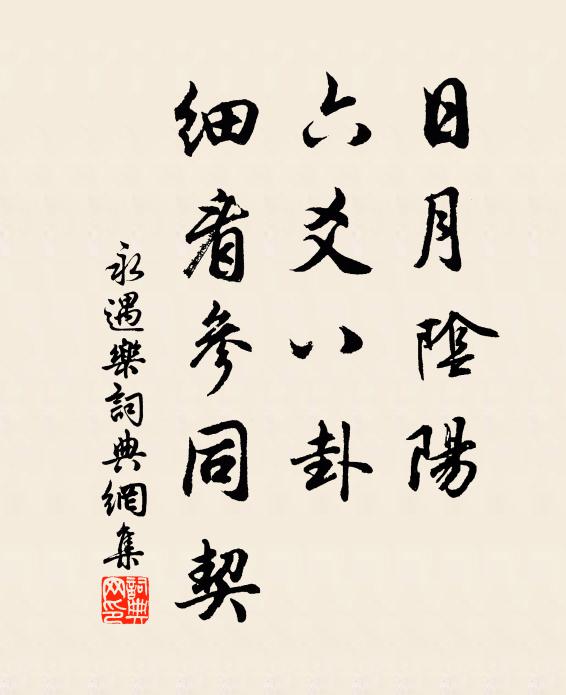 日月陰陽
六爻八卦
細看參同契
永遇樂詞典網集
詞典网印